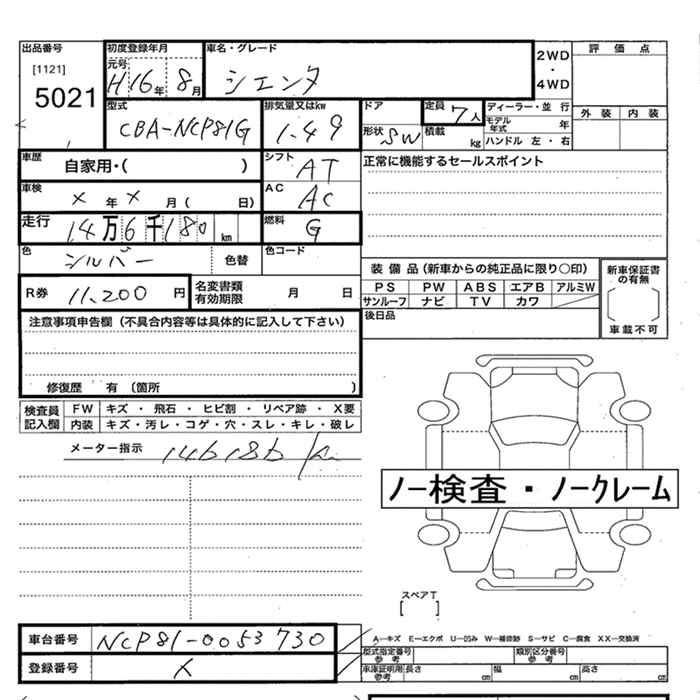 出品番号 初度登録年月 車名・グレード 2WD・4WD 評価点
[1121] 元号
5021 H16年 8月 シエンタ
外装 内装
型式 排気量又はkw ドア 定員 7人 ディーラー・並行
CBA-NCP81G 1.49 モデル年式 年
形状 SW 積載 kg ハンドル 左・右
車歴 自家用・( ) シフト AT 正常に機能するセールスポイント
車検 × 年 × 月( 日) AC AC
走行 14万6千180km 燃料 G
色 シルバー 色替 色コード
装備品(新車からの純正品に限り○印) 新車保証書の有無
R券 11,200円 名変書類有効期限 月 日 PS PW ABS エアB アルミW
サンルーフ ナビ TV カワ
注意事項申告欄(不具合内容等は具体的に記入して下さい) 後日品 車載不可
修復歴 有 (箇所 )
検査員記入欄 FW キズ・飛石・ヒビ割・リペア跡・X要
内装 キズ・汚レ・コゲ・穴・スレ・キレ・破レ
メーター指示 146186
ノー検査・ノークレーム
スペアT
[ ]
車台番号 NCP81-0053730 A-キズ E-エクボ U-凹み W-補修跡 S-サビ C-腐食 XX-交換済
型式指定番号 参考 類別区分番号 参考
登録番号 車庫証明用 参考 長さ cm 幅 cm 高さ cm